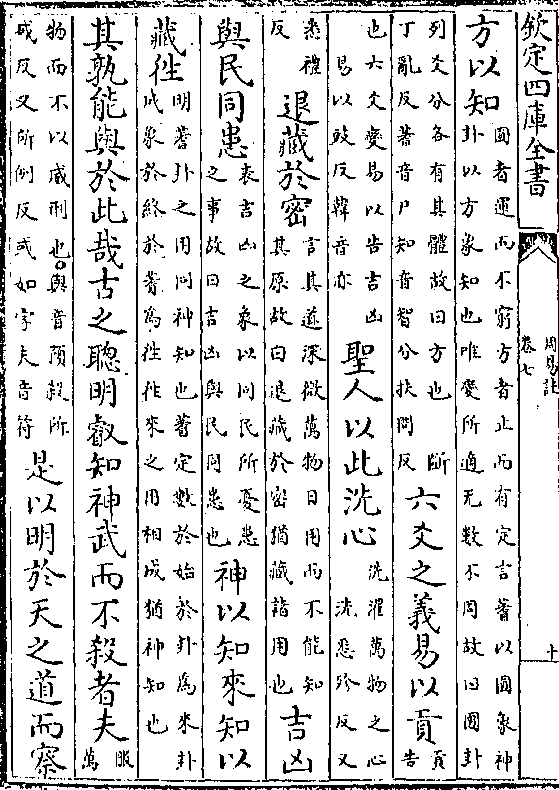 欽定四庫全書
周易註
卷七
十
方以知圓者運而不窮方者止而有定言蓍以圓象神卦以方象知也唯變所適无數不周故曰圓卦
列爻分各有其體故曰方也 斷丁亂反蓍音尸知音智分扶問反六爻之義易以貢貢告
也六爻變易以告吉凶易以豉反韓音亦聖人以此洗心洗濯萬物之心洗悉殄反又
悉禮反退藏於密言其道深微萬物日用而不能知其原故曰退藏於密猶藏諸用也吉凶
與民同患表吉凶之象以同民所憂患之事故曰吉凶與民同患也神以知來知以
藏徃明蓍卦之用同神知也蓍定數於始於卦為來卦成象於終於蓍為徃徃來之用相成猶神知也
其孰能與於此哉古之聰明叡知神武而不殺者夫服萬
物而不以威刑也。與音預殺所戒反又所例反或如字夫音符是以明於天之道而察